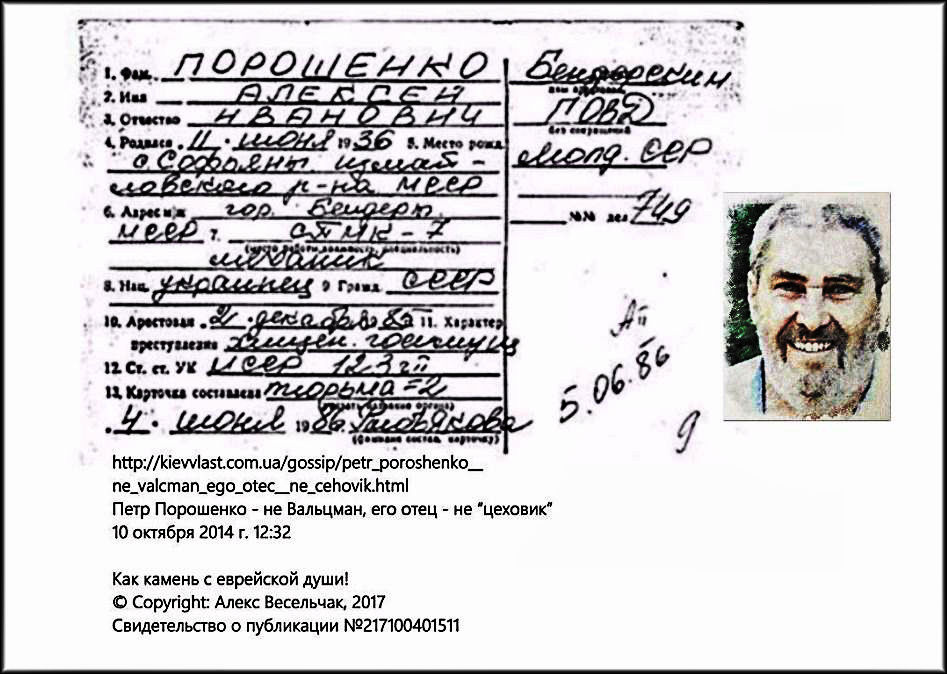 1. Фам. ПОРОШЕНКО
2. Имя АЛЕКСЕЙ
3. Отчество ИВАНОВИЧ
4. Родился 11 июня 1936 5. Место рожд.
с. Софьяны измаи-
ловского р-на МССР
6. Адрес м/ж гор. Бендеры
МССР 7. СПМК-7
(место работы, должность, специальность)
механик
8. Нац. украинец 9 Гражд. СССР
10. Арестован 21 декабря 85 11. Характер
преступления хищен. госимущ
12. Ст. ст. УК МССР 123
13. Карточка составлена тюрьма-2
4. июня 1986
(фамилия состав. карточку)
Бендерским
ПОВД
без сокращений
Молд. ССР
№№ дел 749
АП
5.06.86
9
http://kievvlast.com.ua/gossip/petr_poroshenko__
ne_valcman_ego_otec__ne_cehovik.html
Петр Порошенко - не Вальцман, его отец - не “цеховик”
10 октября 2014 г. 12:32
Как камень с еврейской души!
© Copyright: Алекс Весельчак, 2017
Свидетельство о публикации №217100401511